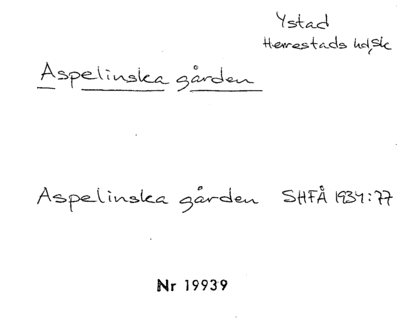 Ystad
Herrestads hd, Sk
Aspelinska gården
Aspelinska gården SHFÅ 1934:77
Nr 19939